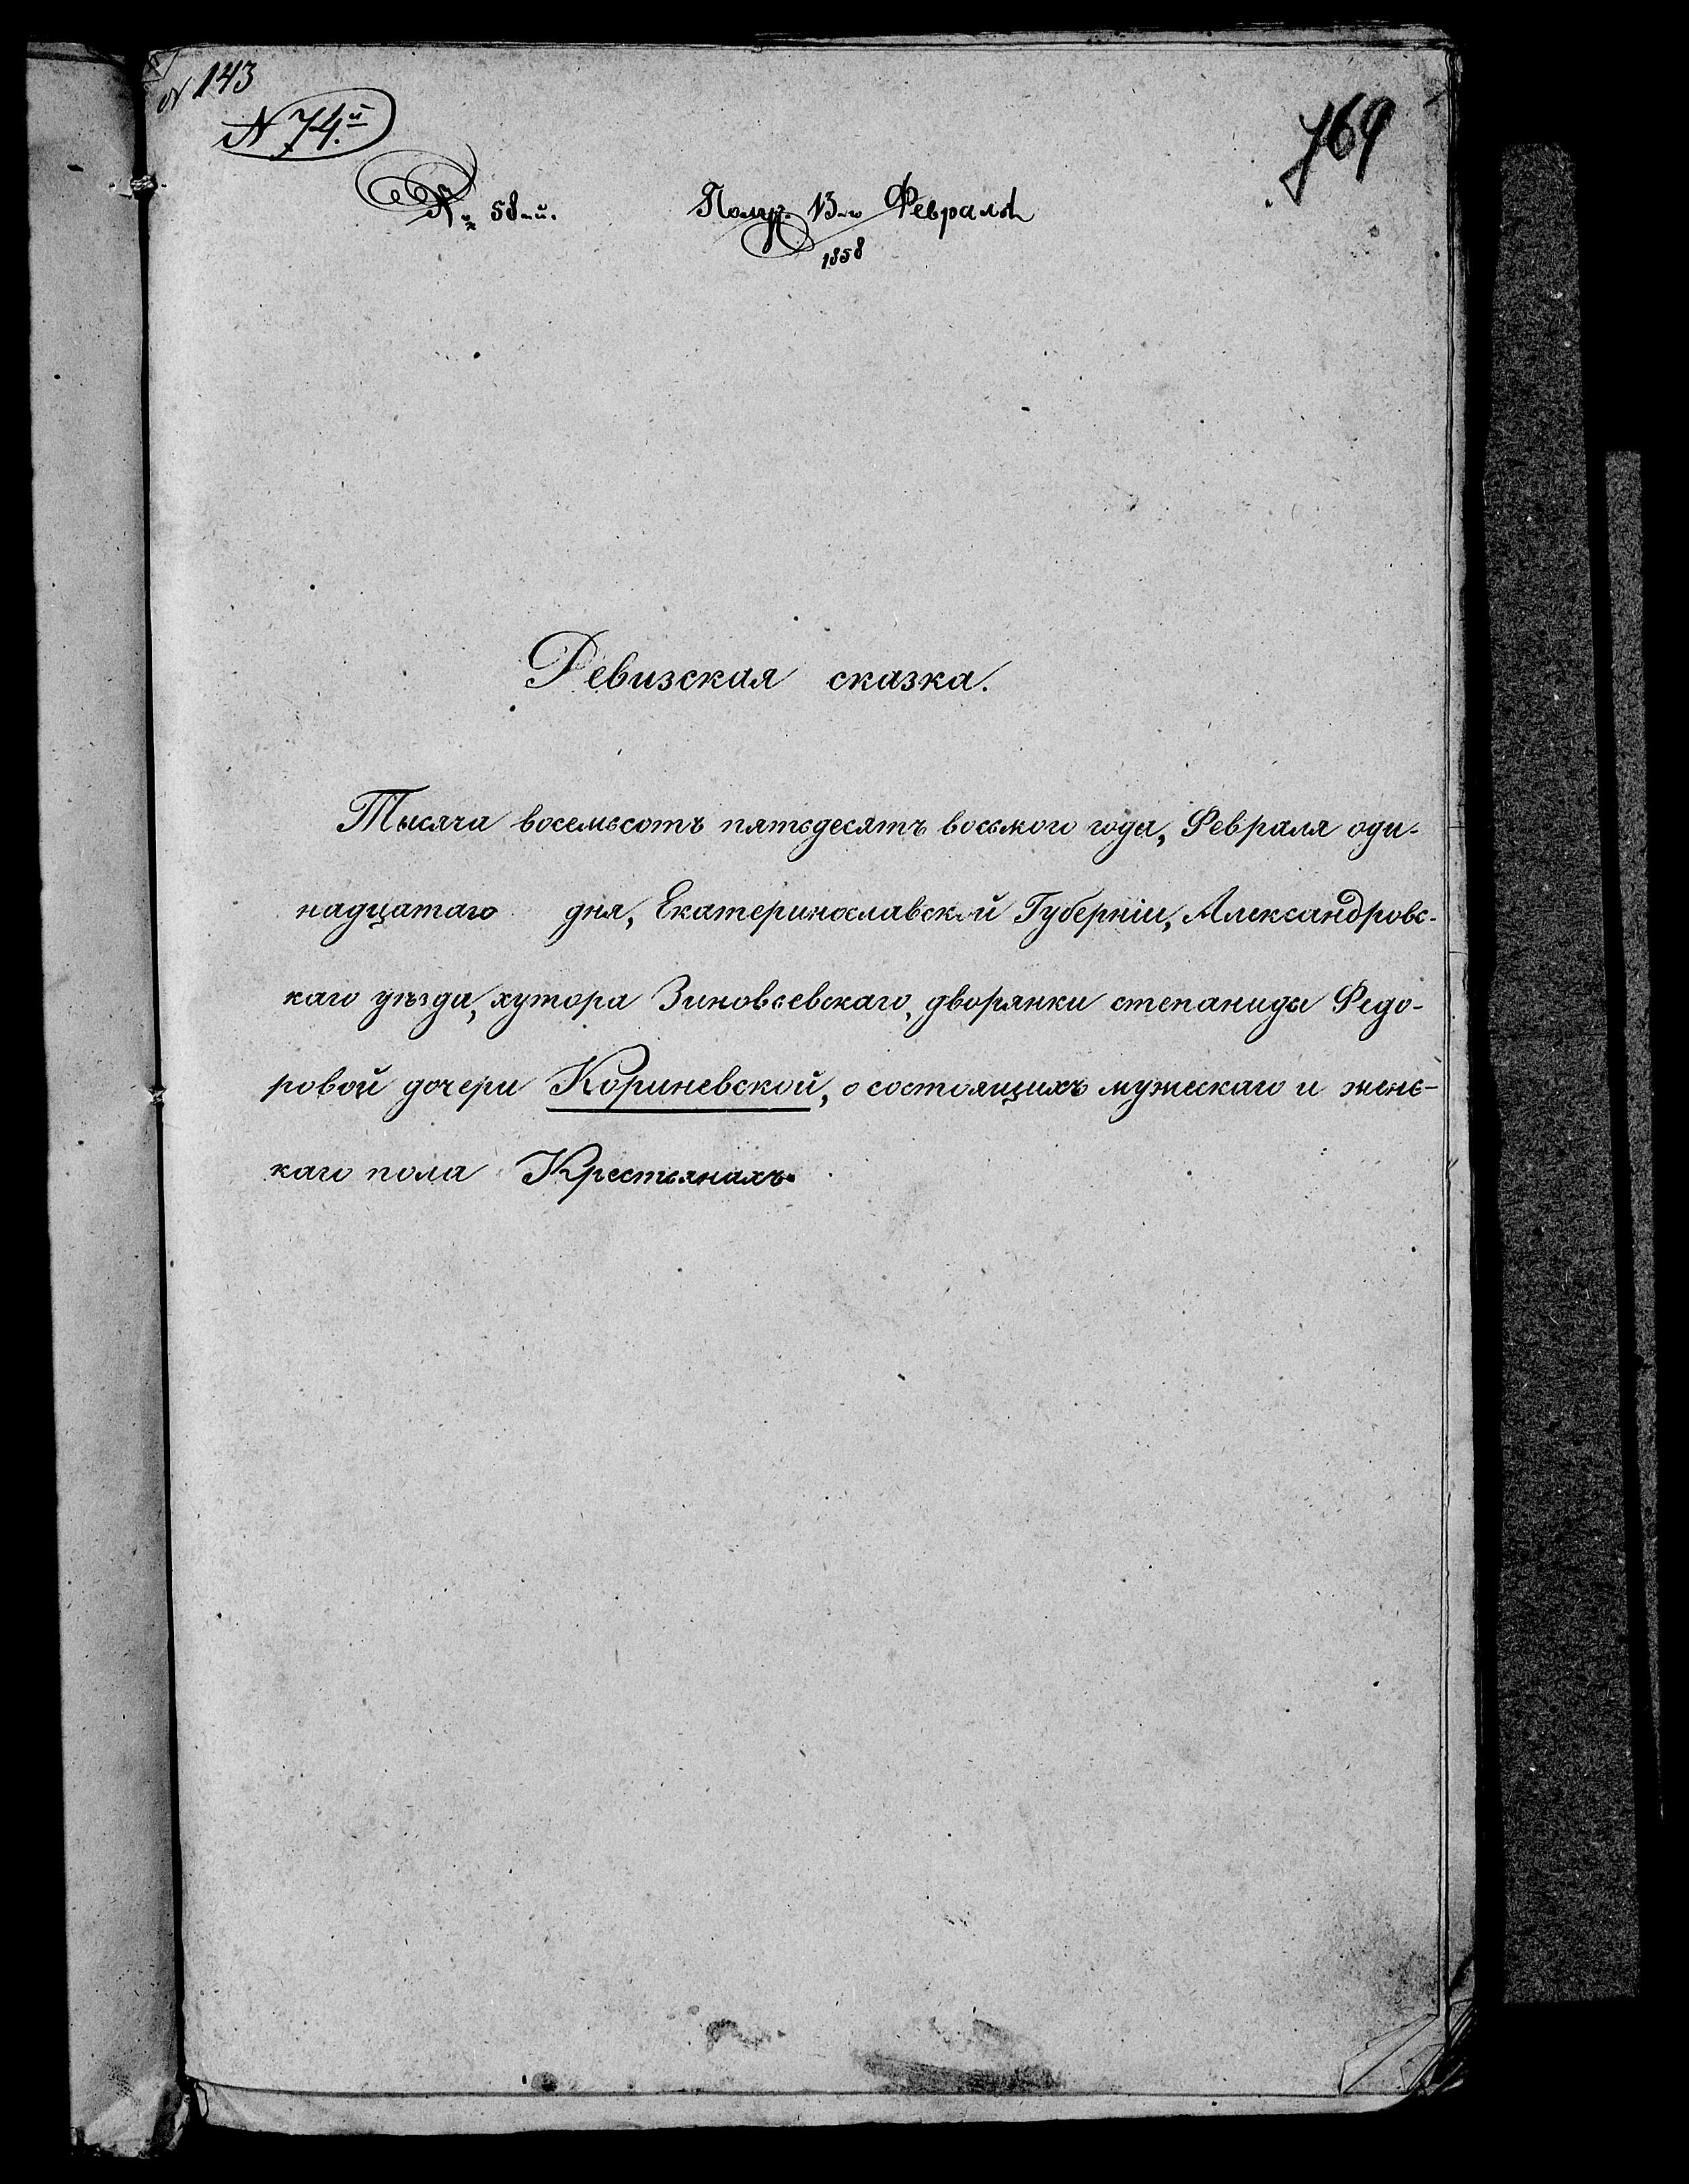 N 143
N 74.й
769
№ 58-й. Получ. 13-го Февраля
1858
Ревизская сказка.
Тысяча восемьсотъ пятьдесятъ восьмого года, Февраля оди-
надцатаго дня, Екатеринославской Губерніи, Александровс-
каго уѣзда, хутора Зиновьевскаго, дворянки степаниды Федо-
ровой дочери Кориневской, о состоящихъ мужескаго и женс-
каго пола Крестьянахъ.